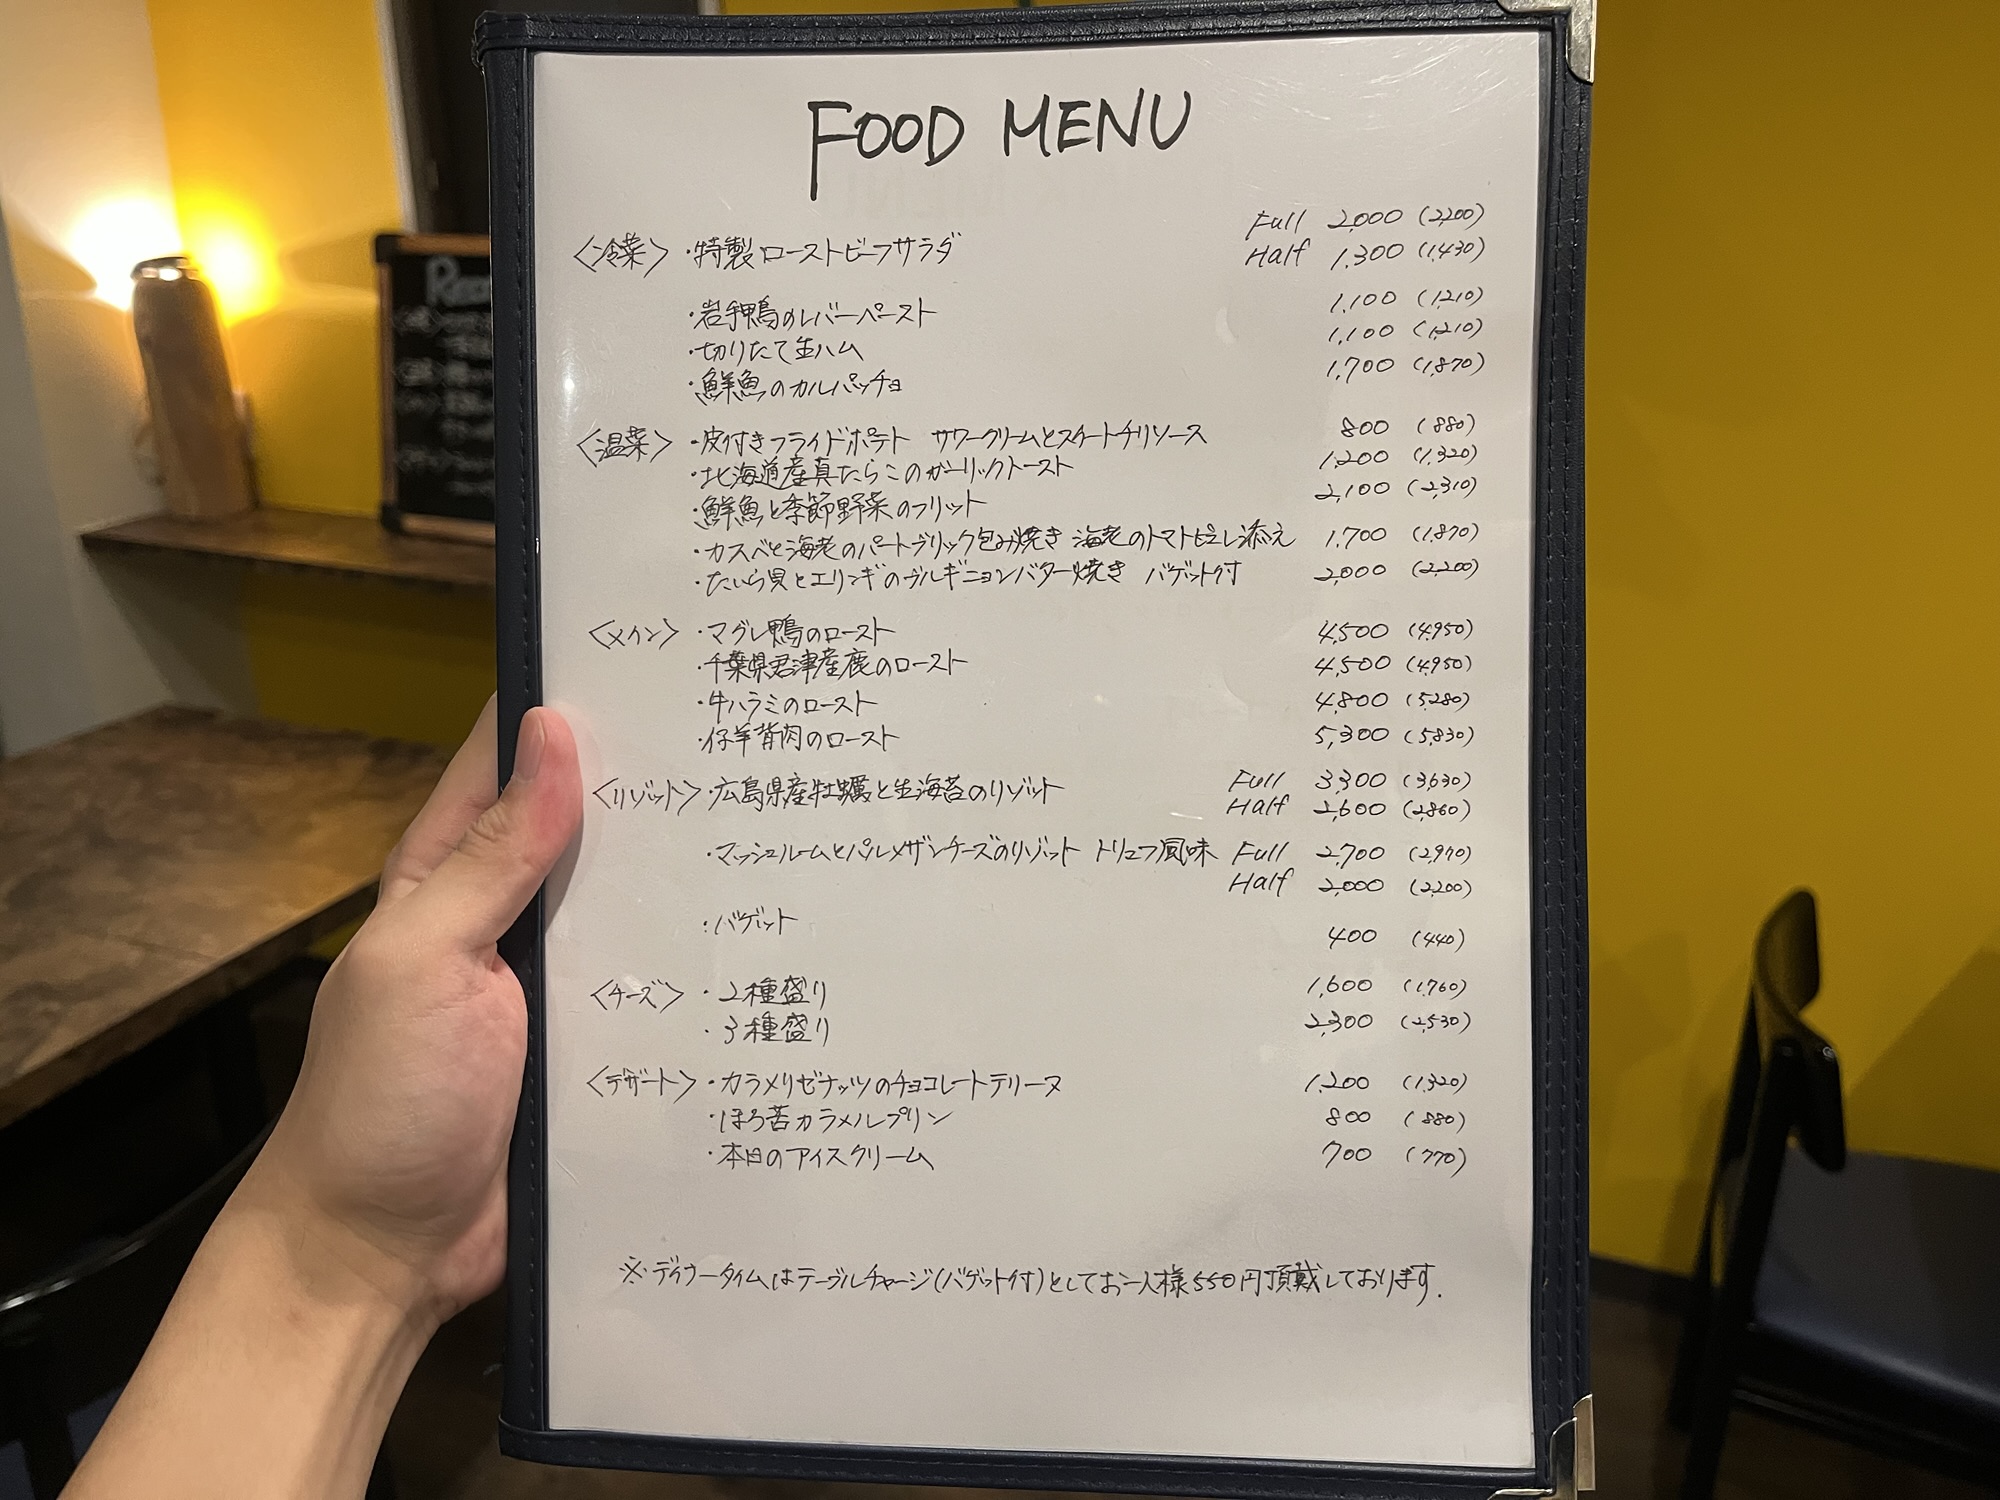 FOOD MENU
Full 2,000 (2,200)
〈冷菜〉 ・特製ローストビーフサラダ Half 1,300 (1,430)
・岩手鴨のレバーペースト 1,100 (1,210)
・切りたて生ハム 1,100 (1,210)
・鮮魚のカルパッチョ 1,700 (1,870)
〈温菜〉 ・皮付きフライドポテト サワークリームとスイートチリソース 800 (880)
・北海道産真たらこのガーリックトースト 1,200 (1,320)
・鮮魚と季節野菜のフリット 2,100 (2,310)
・カスベと海老のパートブリック包み焼き 海老のトマトピュレ添え 1,700 (1,870)
・たいら貝とエリンギのヴルギニョンバター焼き バゲット付 2,000 (2,200)
〈メイン〉 ・マグレ鴨のロースト 4,500 (4,950)
・千葉県君津産鹿のロースト 4,500 (4,950)
・牛ハラミのロースト 4,800 (5,280)
・仔羊背肉のロースト 5,300 (5,830)
〈リゾット〉 ・広島県産牡蠣と生海苔のリゾット Full 3,300 (3,630)
Half 2,600 (2,860)
・マッシュルームとパルメザンチーズのリゾット トリュフ風味 Full 2,700 (2,970)
Half 2,000 (2,200)
・バゲット 400 (440)
〈チーズ〉 ・2種盛り 1,600 (1,760)
・3種盛り 2,300 (2,530)
〈デザート〉 ・カラメリゼナッツのチョコレートテリーヌ 1,200 (1,320)
・ほろ苦カラメルプリン 800 (880)
・本日のアイスクリーム 700 (770)
※ディナータイムはテーブルチャージ(バゲット付)としてお一人様550円頂戴しております.